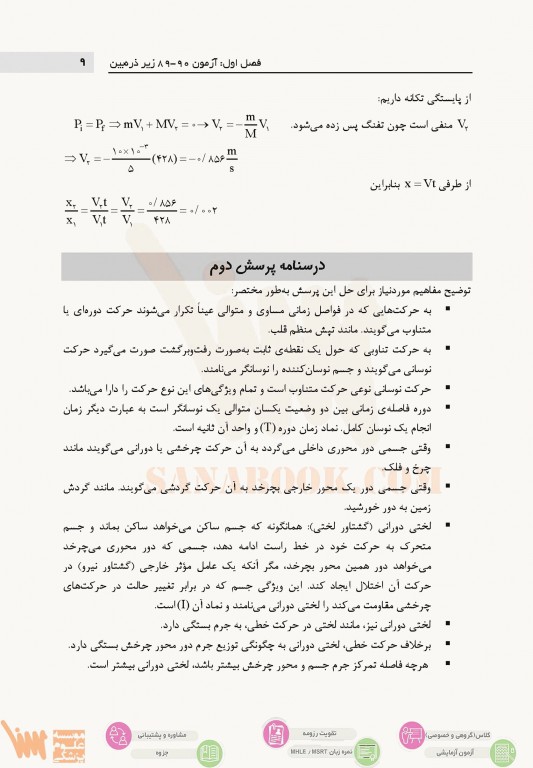 فصل اول: آزمون ۹۰-۸۹ زیر ذره‌بین ۹
از پایستگی تکانه داریم:
V₂ منفی است چون تفنگ پس زده می‌شود. Pᵢ = P_f ⇒ mV₁ + MV₂ = ۰ → V₂ = −(m/M)V₁
⇒ V₂ = −(۱۰×۱۰⁻³/۵)(۴۲۸) = −۰/۸۵۶ m/s
از طرفی x = Vt بنابراین
x₂/x₁ = V₂t/V₁t = V₂/V₁ = ۰/۸۵۶/۴۲۸ = ۰/۰۰۲
درسنامه پرسش دوم
توضیح مفاهیم موردنیاز برای حل این پرسش به‌طور مختصر:
▪ به حرکت‌هایی که در فواصل زمانی مساوی و متوالی عیناً تکرار می‌شوند حرکت دوره‌ای یا
متناوب می‌گویند. مانند تپش منظم قلب.
▪ به حرکت تناوبی که حول یک نقطه‌ی ثابت به‌صورت رفت‌وبرگشت صورت می‌گیرد حرکت
نوسانی می‌گویند و جسم نوسان‌کننده را نوسانگر می‌نامند.
▪ حرکت نوسانی نوعی حرکت متناوب است و تمام ویژگی‌های این نوع حرکت را دارا می‌باشد.
▪ دوره فاصله‌ی زمانی بین دو وضعیت یکسان متوالی یک نوسانگر است به عبارت دیگر زمان
انجام یک نوسان کامل. نماد زمان دوره (T) و واحد آن ثانیه است.
▪ وقتی جسمی دور محوری داخلی می‌گردد به آن حرکت چرخشی یا دورانی می‌گویند مانند
چرخ و فلک.
▪ وقتی جسمی دور یک محور خارجی بچرخد به آن حرکت گردشی می‌گویند. مانند گردش
زمین به دور خورشید.
▪ لختی دورانی (گشتاور لختی): همانگونه که جسم ساکن می‌خواهد ساکن بماند و جسم
متحرک به حرکت خود در خط راست ادامه دهد، جسمی که دور محوری می‌چرخد
می‌خواهد دور همین محور بچرخد، مگر آنکه یک عامل مؤثر خارجی (گشتاور نیرو) در
حرکت آن اختلال ایجاد کند. این ویژگی جسم که در برابر تغییر حالت در حرکت‌های
چرخشی مقاومت می‌کند را لختی دورانی می‌نامند و نماد آن (I) است.
▪ لختی دورانی نیز، مانند لختی در حرکت خطی، به جرم بستگی دارد.
▪ برخلاف حرکت خطی، لختی دورانی به چگونگی توزیع جرم دور محور چرخش بستگی دارد.
▪ هرچه فاصله تمرکز جرم جسم و محور چرخش بیشتر باشد، لختی دورانی بیشتر است.
SANABOOK.COM
کلاس(گروهی و خصوصی)
آزمون آزمایشی
تقویت رزومه
نمره زبان MHLE / MSRT
مشاوره و پشتیبانی
جزوه